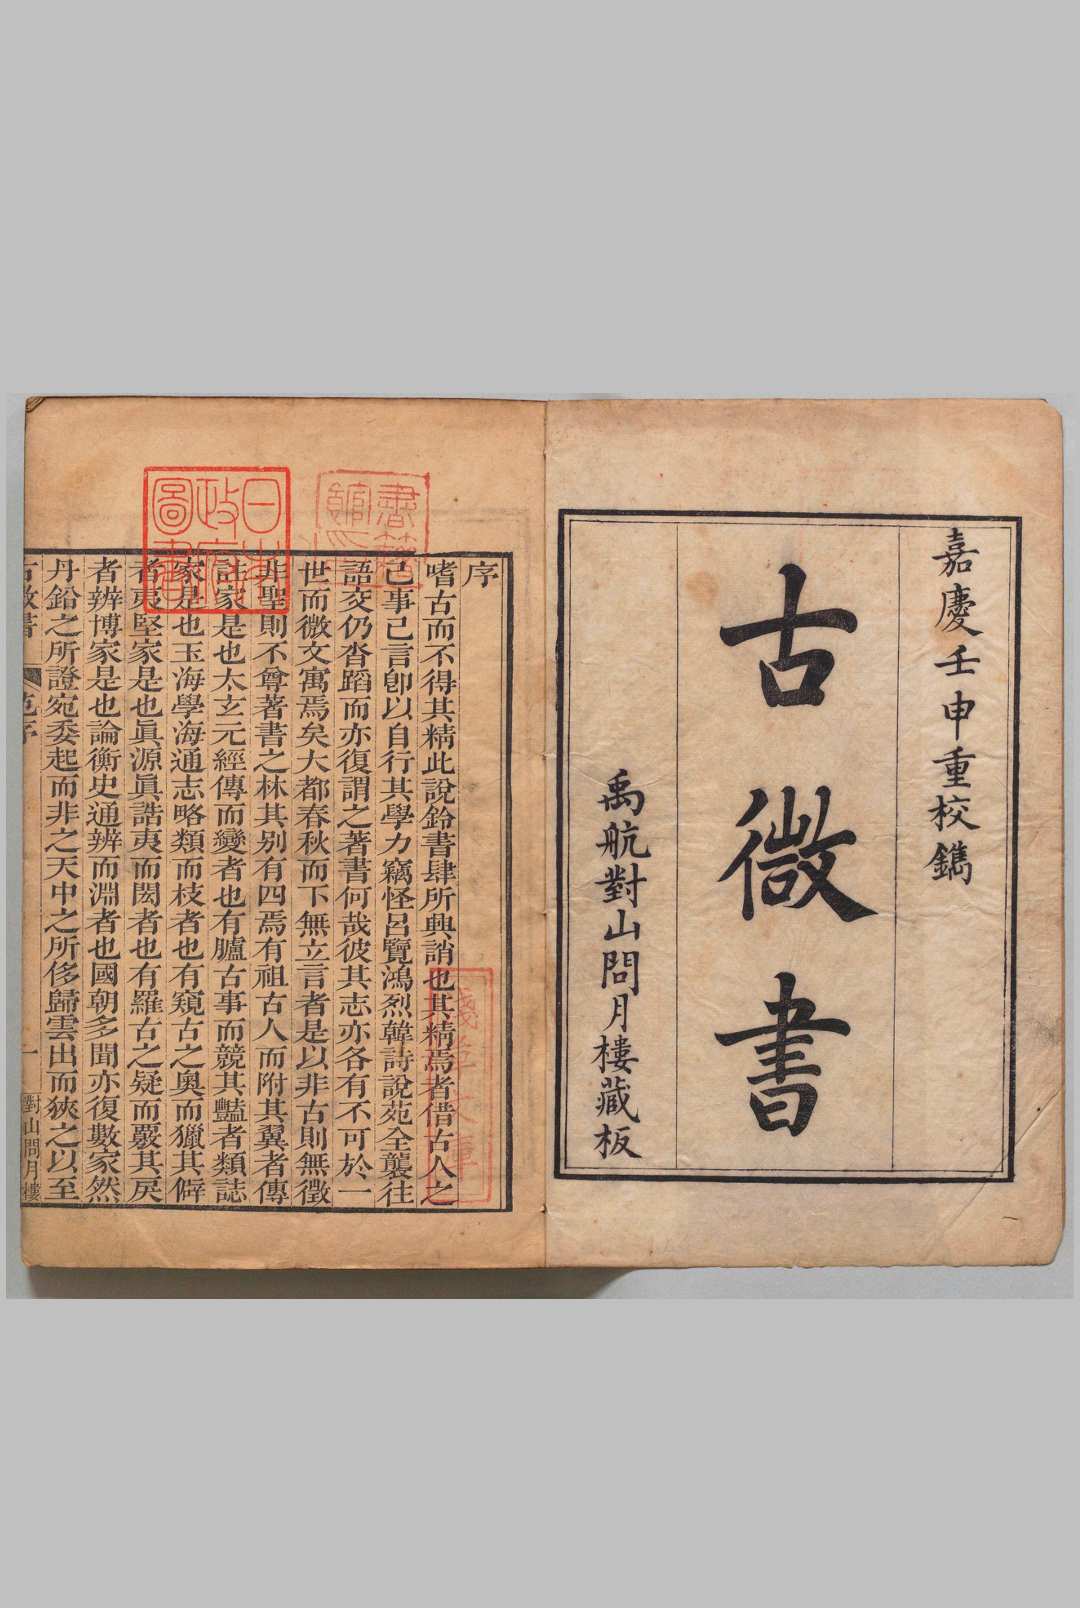 嘉慶壬申重校鐫
古微書
禹航對山問月樓藏板
序
嗜古而不得其精此說鈴書肆所興誚也其精焉者借古人之
己事己言卽以自行其學力竊怪呂覽鴻烈韓詩說苑全襲往
語交仍沓蹈而亦復謂之著書何哉彼其志亦各有不可於一
世而微文寓焉矣大都春秋而下無立言者是以非古則無徵
非聖則不尊著書之林其別有四焉有祖古人而附其翼者傳
註家是也太玄元經傳而變者也有臚古事而競其豔者類誌
家是也玉海學海通志略類而枝者也有窺古之奧而獵其僻
者夷堅家是也眞源眞誥夷而閎者也有羅古之疑而覈其戾
者辨博家是也論衡史通辨而淵者也國朝多聞亦復數家然
丹鉛之所證宛委起而非之天中之所侈歸雲出而狹之以至
古微書
序
一
對山問月樓
日本
政府
圖書
書籍
館
淺草文庫